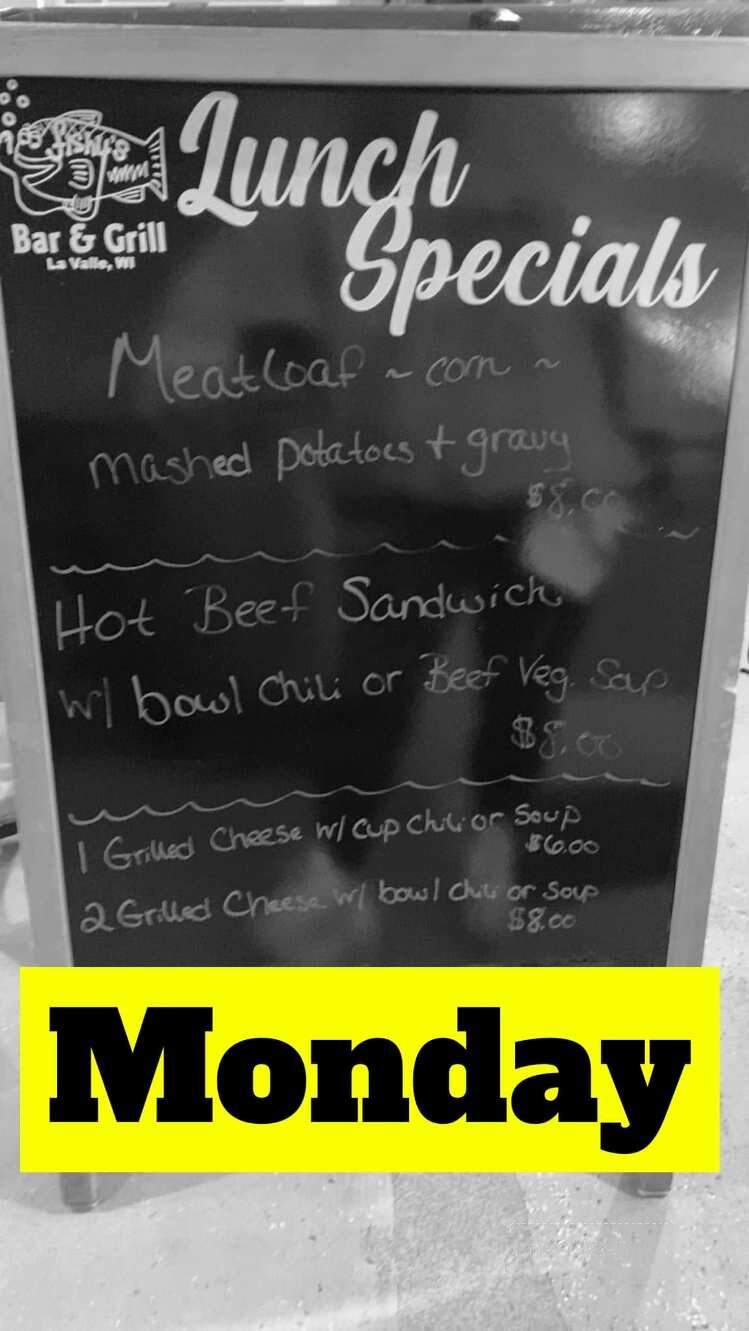 fishy's
Bar & Grill
La Valle, WI
Lunch
Specials
Meatloaf ~ corn ~
mashed potatoes + gravy
$8.00
Hot Beef Sandwich
w/ bowl Chili or Beef Veg. Soup
$8.00
1 Grilled Cheese w/ cup chili or Soup
$6.00
2 Grilled Cheese w/ bowl chili or Soup
$8.00
Monday